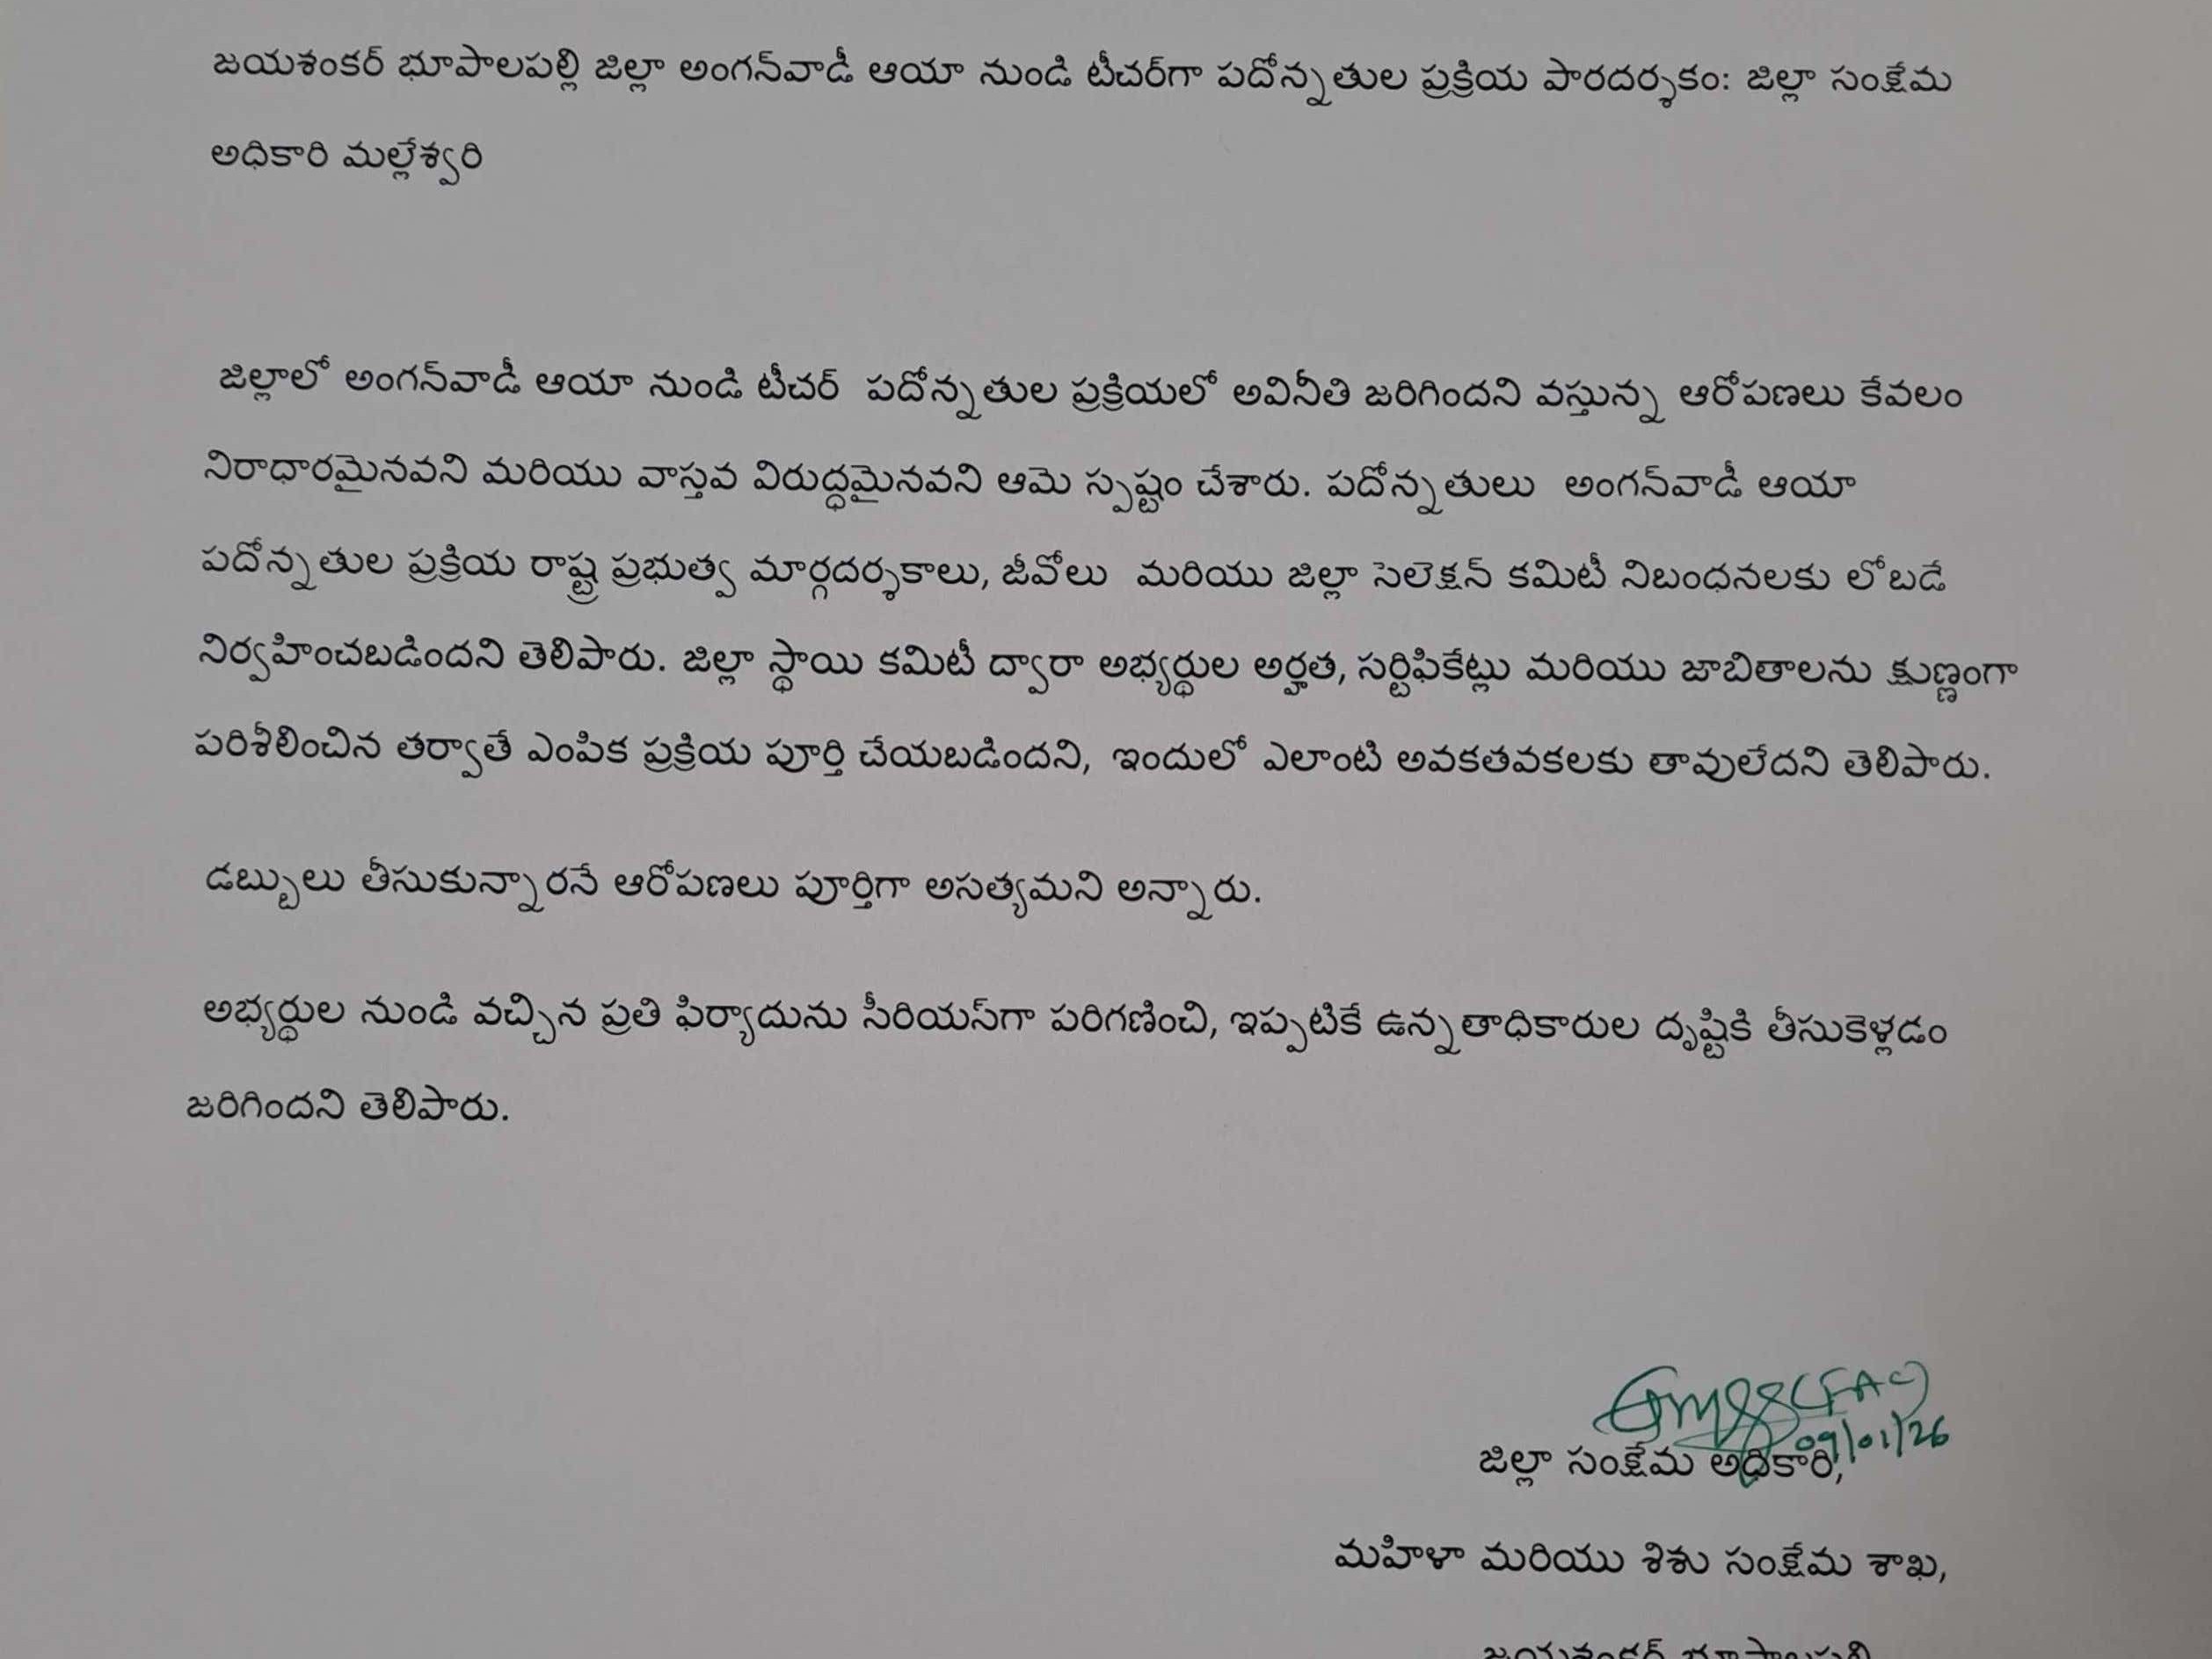 జయశంకర్ భూపాలపల్లి జిల్లా అంగన్‌వాడీ ఆయా నుండి టీచర్‌గా పదోన్నతుల ప్రక్రియ పారదర్శకం: జిల్లా సంక్షేమ
అధికారి మల్లేశ్వరి
జిల్లాలో అంగన్‌వాడీ ఆయా నుండి టీచర్ పదోన్నతుల ప్రక్రియలో అవినీతి జరిగిందని వస్తున్న ఆరోపణలు కేవలం
నిరాధారమైనవని మరియు వాస్తవ విరుద్ధమైనవని ఆమె స్పష్టం చేశారు. పదోన్నతులు అంగన్‌వాడీ ఆయా
పదోన్నతుల ప్రక్రియ రాష్ట్ర ప్రభుత్వ మార్గదర్శకాలు, జీవోలు మరియు జిల్లా సెలెక్షన్ కమిటీ నిబంధనలకు లోబడే
నిర్వహించబడిందని తెలిపారు. జిల్లా స్థాయి కమిటీ ద్వారా అభ్యర్థుల అర్హత, సర్టిఫికేట్లు మరియు జాబితాలను క్షుణ్ణంగా
పరిశీలించిన తర్వాతే ఎంపిక ప్రక్రియ పూర్తి చేయబడిందని, ఇందులో ఎలాంటి అవకతవకలకు తావులేదని తెలిపారు.
డబ్బులు తీసుకున్నారనే ఆరోపణలు పూర్తిగా అసత్యమని అన్నారు.
అభ్యర్థుల నుండి వచ్చిన ప్రతి ఫిర్యాదును సీరియస్‌గా పరిగణించి, ఇప్పటికే ఉన్నతాధికారుల దృష్టికి తీసుకెళ్లడం
జరిగిందని తెలిపారు.
(FAC)
09/01/26
జిల్లా సంక్షేమ అధికారి,
మహిళా మరియు శిశు సంక్షేమ శాఖ,
జయశంకర్ భూపాలపల్లి